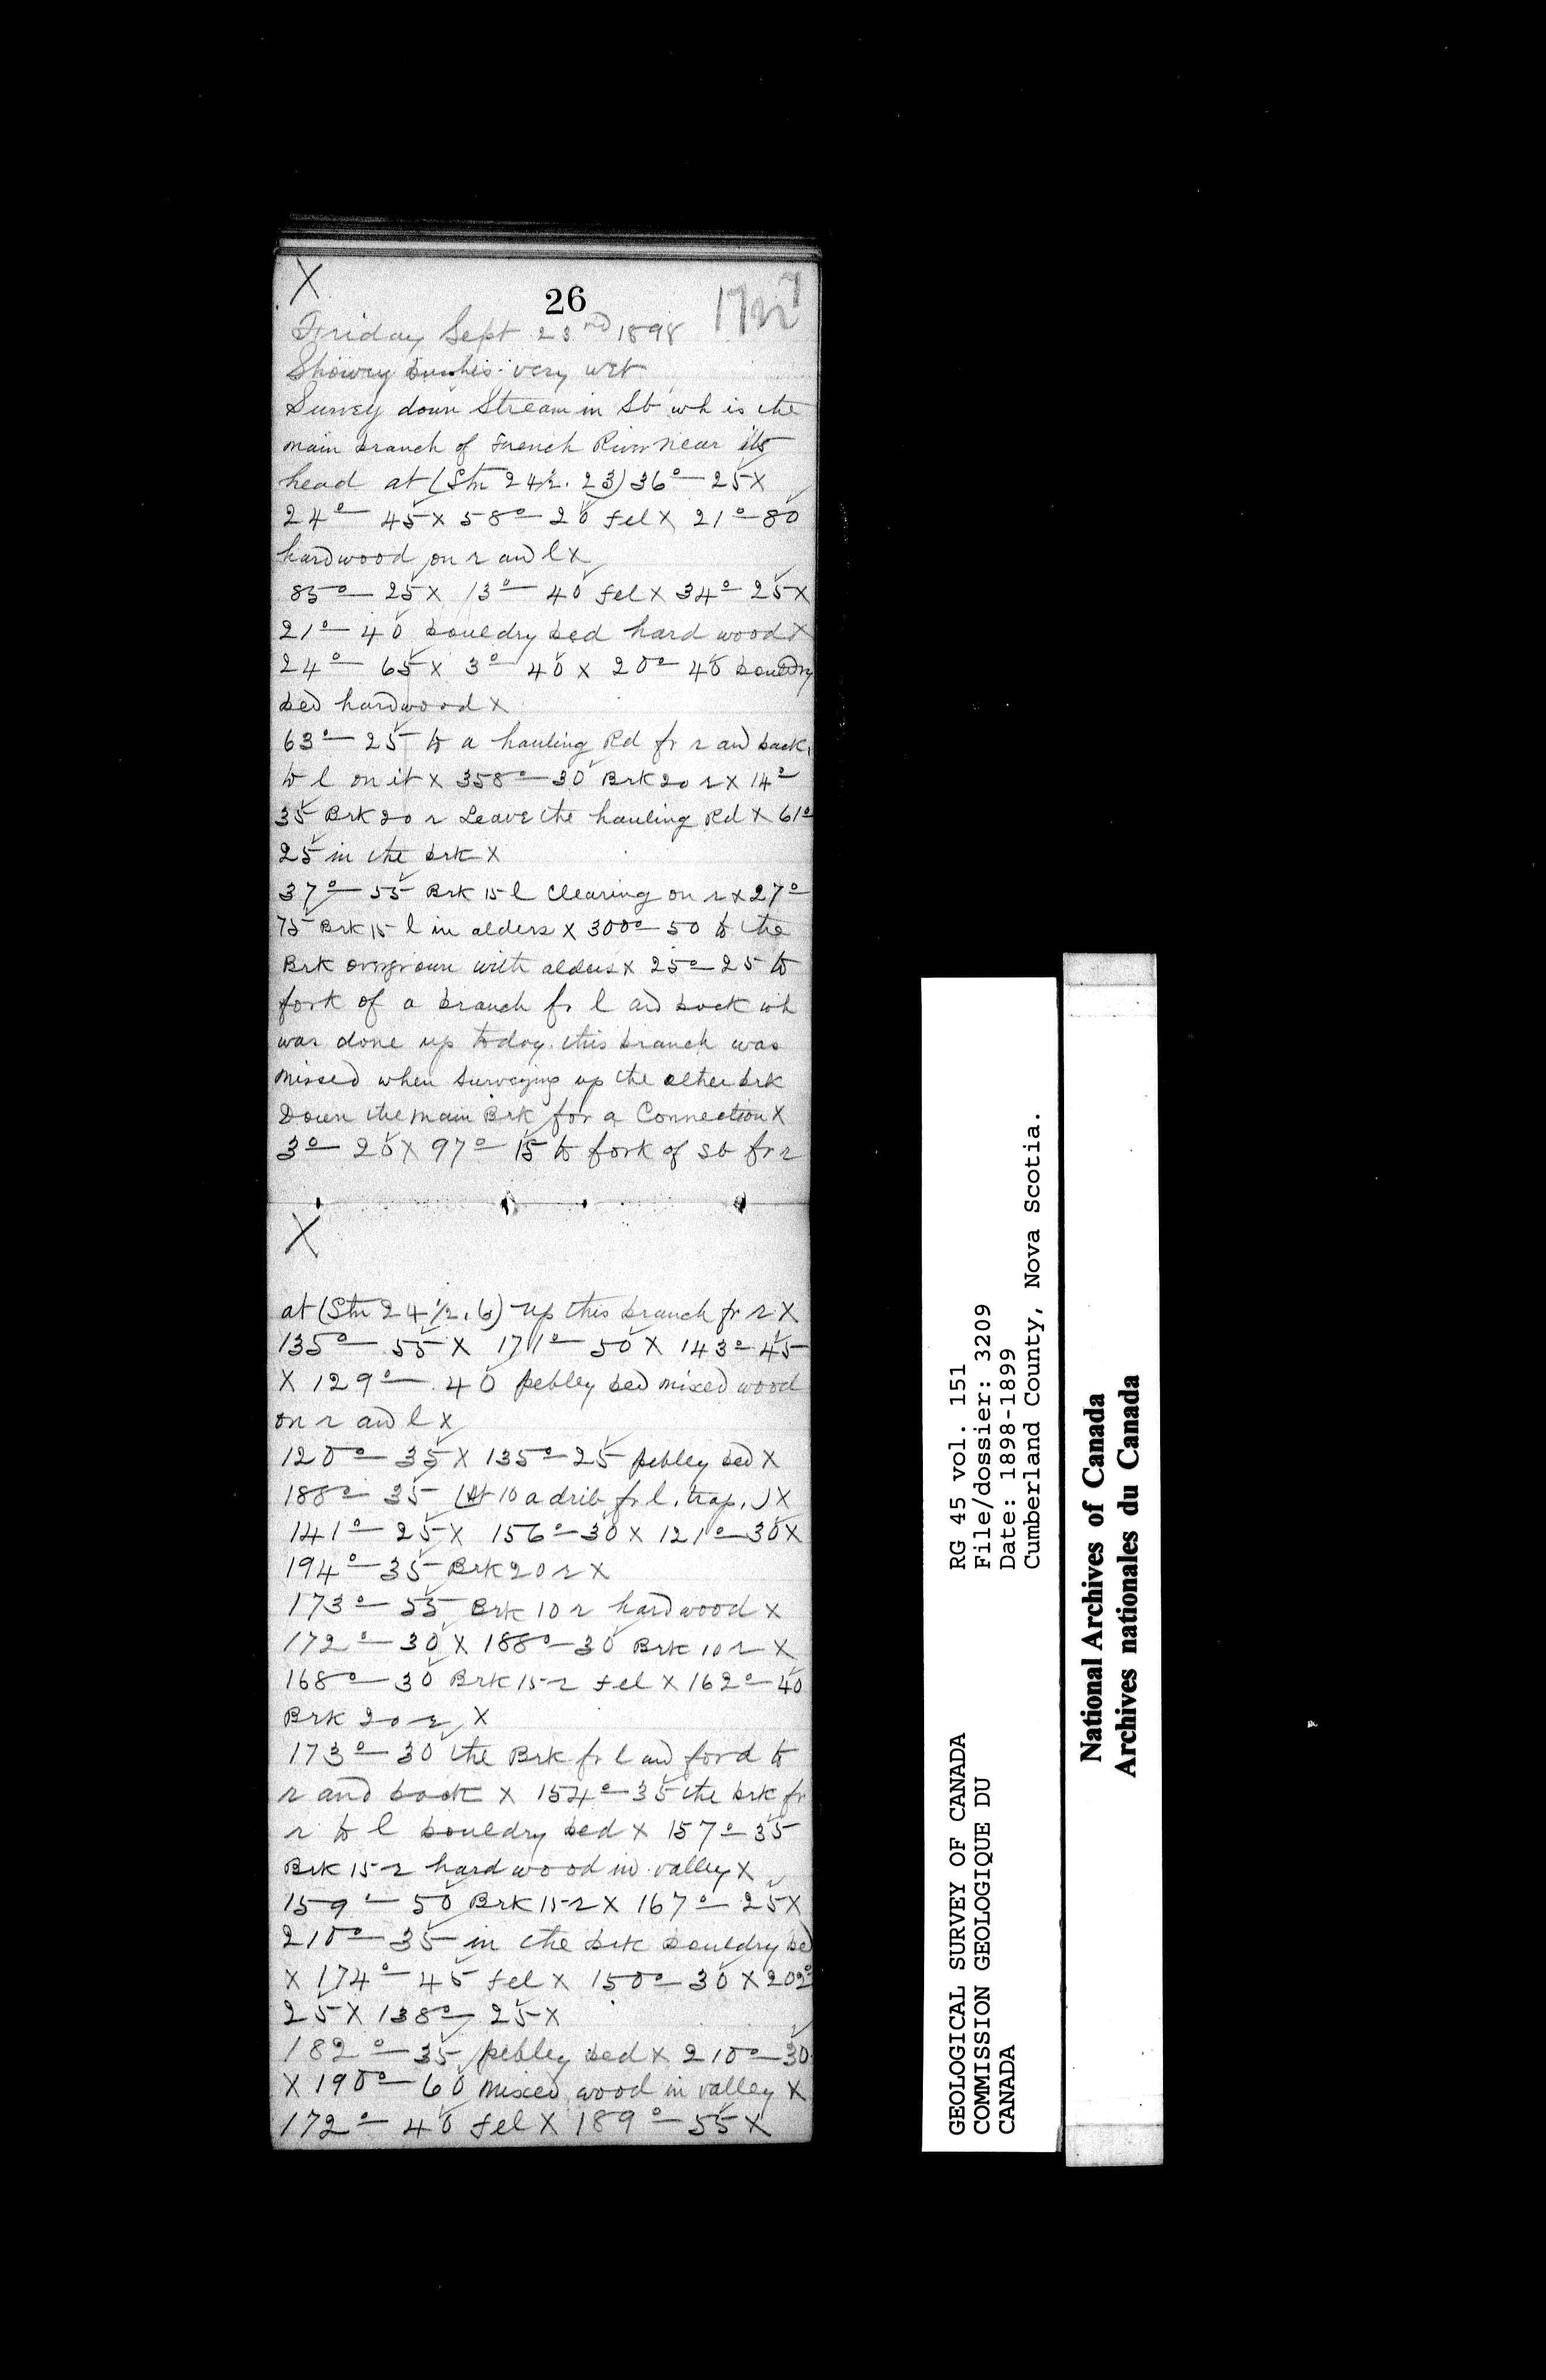 X
26
Friday Sept 23rd 1898
Showery bushes very wet
Survey down Stream in Sb wh is the
main branch of French River near its
head at (Stn 24½.23) 36°— 25 X
24°— 45 X 58°— 20 fel X 21°— 80
hardwood on r and l X
85°— 25 X 13°— 40 fel X 34°— 25 X
21°— 40 bouldry bed hard wood X
24°— 65 X 3°— 40 X 20°— 40 bouldry
bed hardwood X
63°— 25 to a hauling Rd fr r and back
to l on it X 358°— 30 Brk 20 r X 14°—
35 Brk 20 r Leave the hauling Rd X 61°
25 in the brk X
37°— 55 Brk 15 l Clearing on r X 27°—
75 Brk 15 l in alders X 300°— 50 to the
Brk overgrown with alders X 25°— 25 to
fork of a branch fr l and back wh
was done up today. this branch was
missed when surveying up the other brk
Down the main Brk for a Connection X
3°— 20 X 97°— 15 to fork of Sb fr r
X
at (Stn 24½.6) up this branch fr r X
135°— 55 X 171°— 50 X 143°— 45
X 129°— 40 pebley bed mixed wood
on r and l X
120°— 35 X 135°— 25 pebley bed X
188°— 35 (At 10 a drib fr l. trap.) X
141°— 25 X 156°— 30 X 121°— 30 X
194°— 35 Brk 20 r X
173°— 55 Brk 10 r hardwood X
172°— 30 X 188°— 30 Brk 10 r X
168°— 30 Brk 15 r fel X 162°— 40
Brk 20 r X
173°— 30 the Brk fr l and ford to
r and back X 154°— 35 the brk fr
r to l bouldry bed X 157°— 35
Brk 15 r hard wood in valley X
159°— 50 Brk 15 r X 167°— 25 X
210°— 35 in the brk bouldry bed
X 174°— 45 fel X 150°— 30 X 202°
25 X 138°— 25 X
182°— 35 pebley bed X 210°— 30
X 190°— 60 mixed wood in valley X
172°— 40 fel X 189°— 55 X
GEOLOGICAL SURVEY OF CANADA
COMMISSION GEOLOGIQUE DU
CANADA
RG 45 vol. 151
File/dossier: 3209
Date: 1898-1899
Cumberland County, Nova Scotia.
National Archives of Canada
Archives nationales du Canada